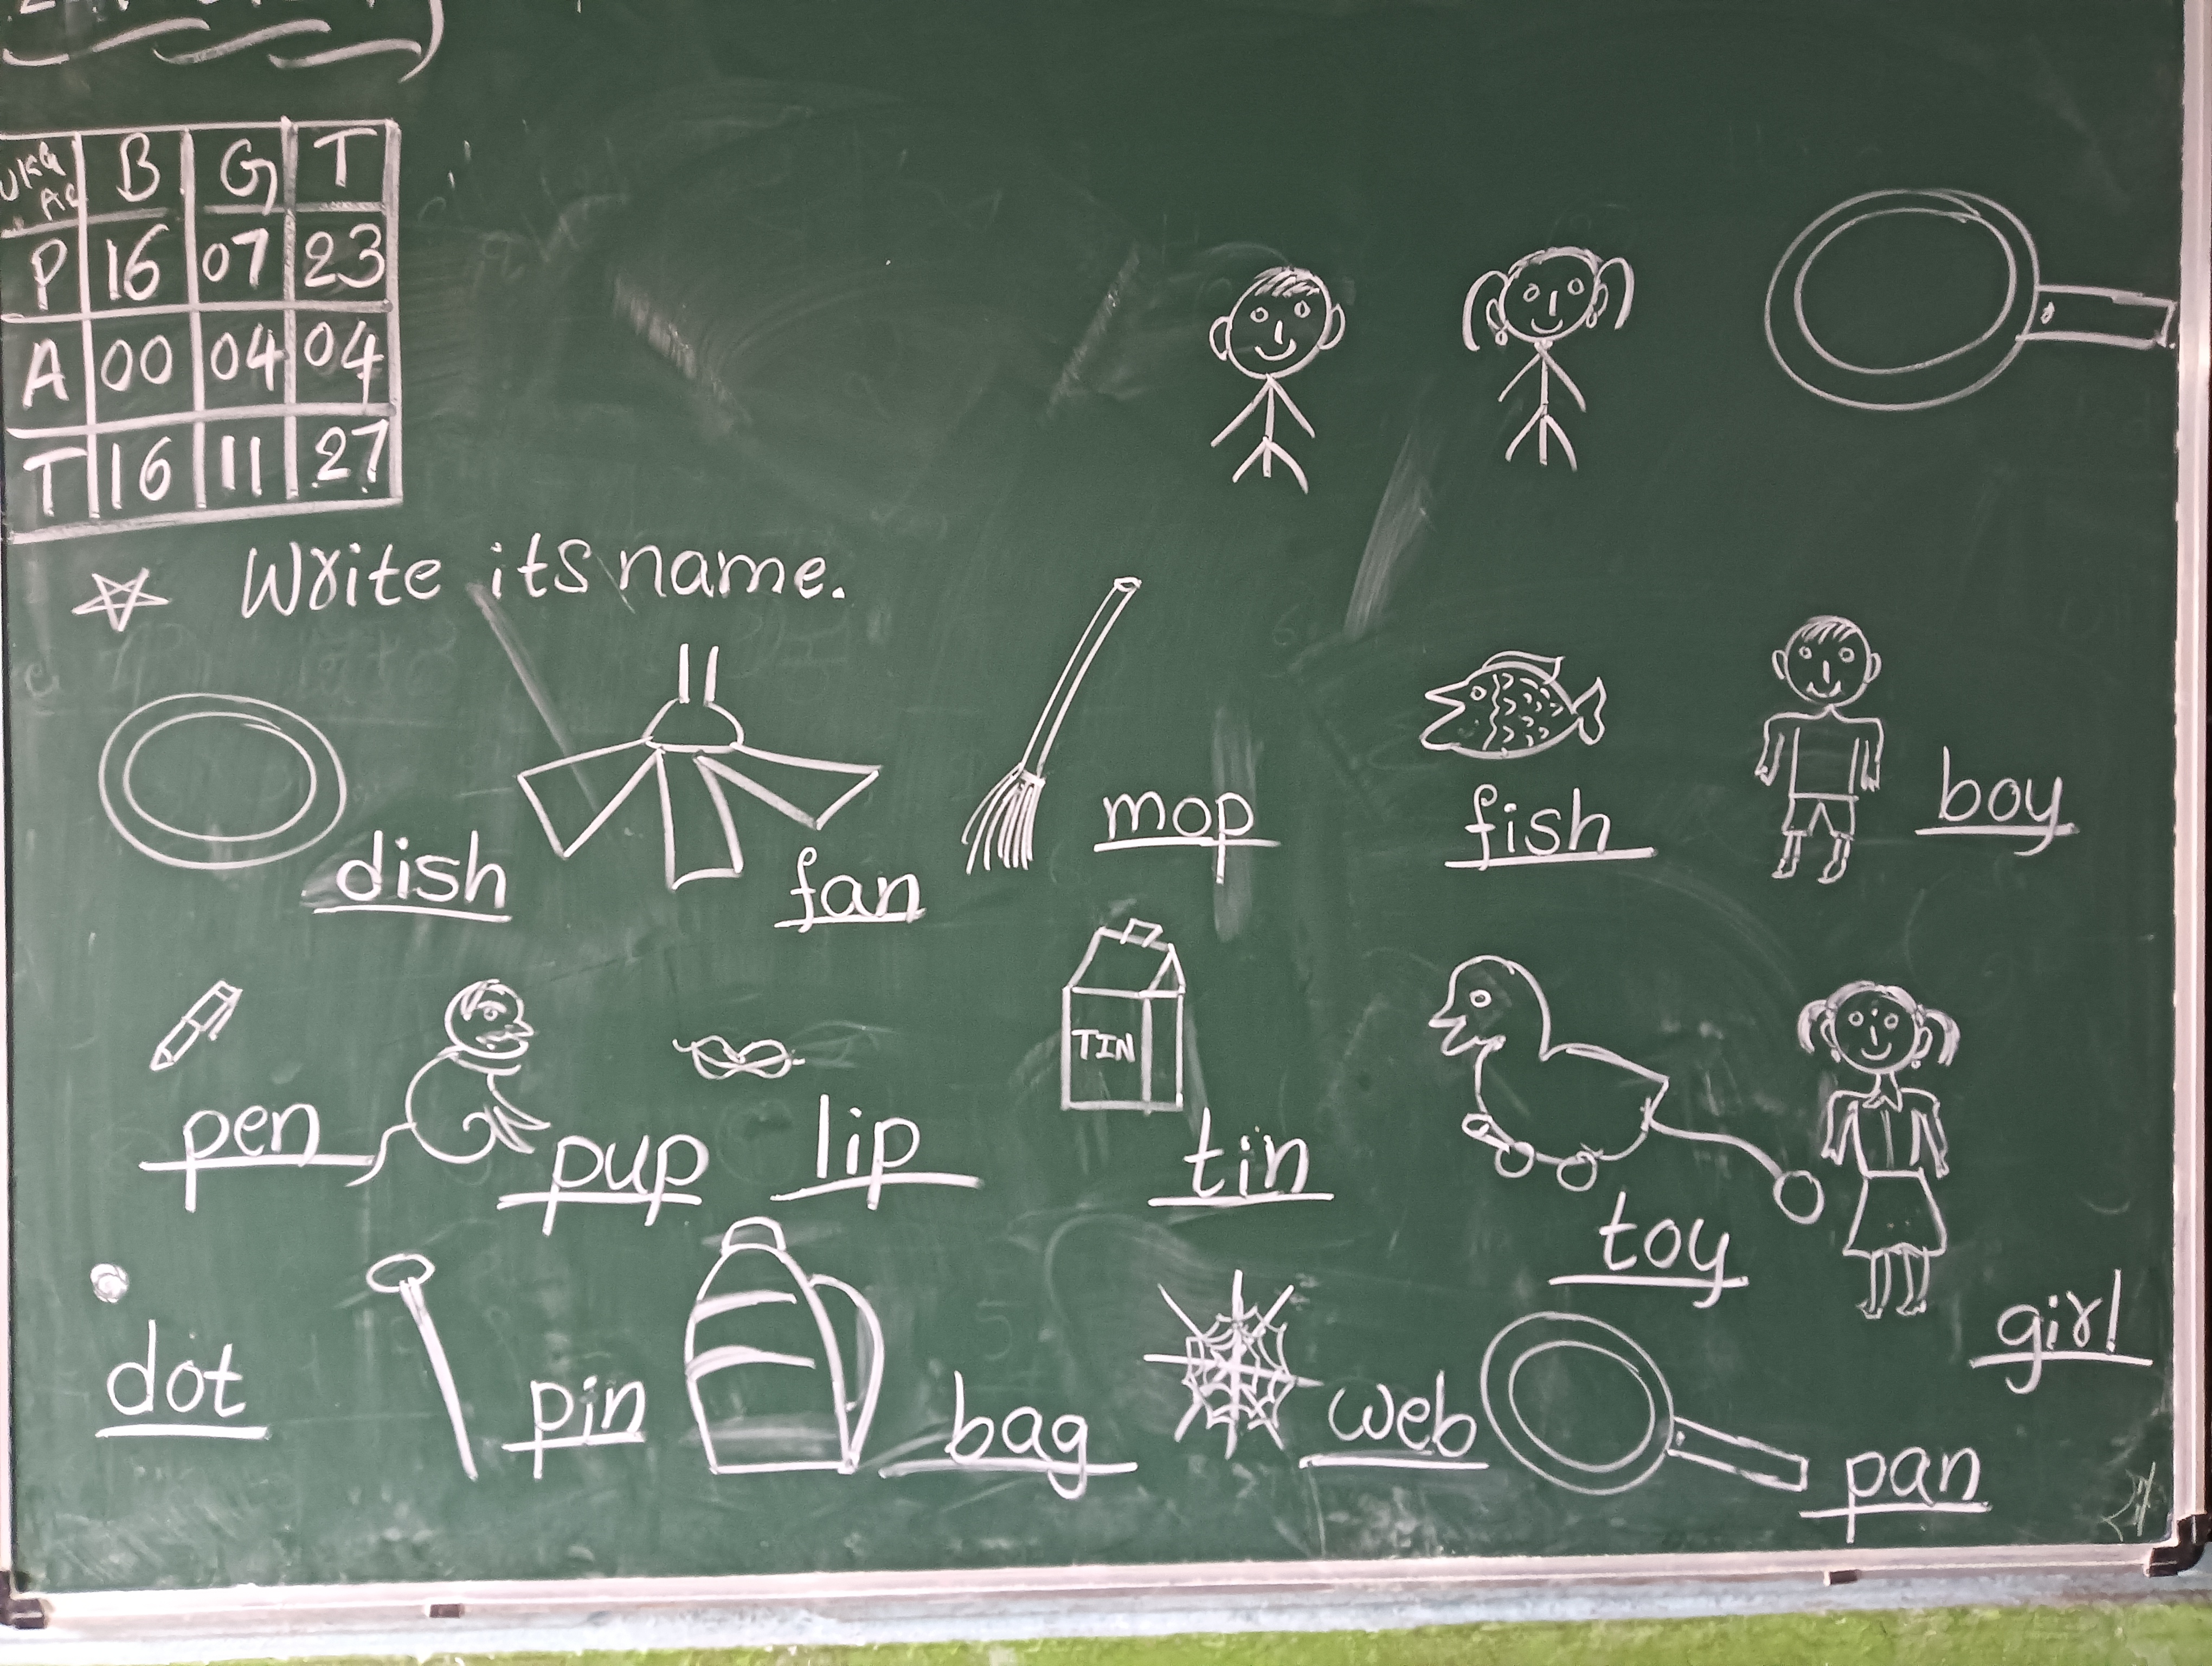 UKG B G T
P 16 07 23
A 00 04 04
T 16 11 27
Write its name.
dish fan mop fish boy
TIN
pen pup lip tin toy girl
dot pin bag web pan